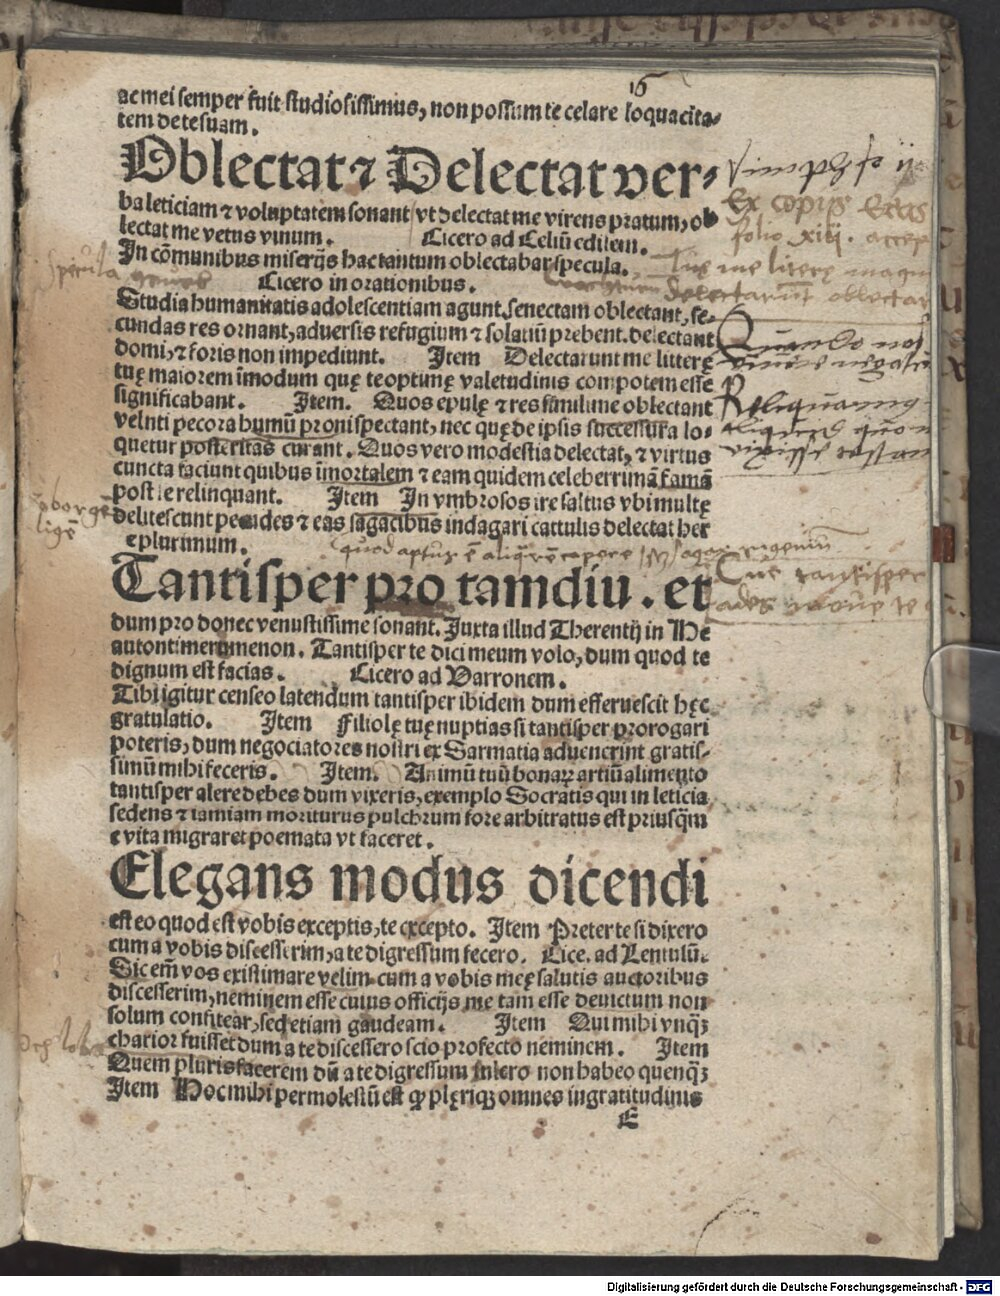 16
ac mei semper fuit studiosissimus, non possum te celare loquacita⸗
tem de te suam.
Oblectat ⁊ Delectat ver⸗
ba leticiam ⁊ voluptatem sonant vt delectat me virens pratum, ob
lectat me vetus vinum. Cicero ad Celiū edilem.
In cōmunibus miserijs hac tantum oblectabar specula.
Cicero in orationibus.
Studia humanitatis adolescentiam agunt, senectam oblectant, se⸗
cundas res ornant, aduersis refugium ⁊ solatiū prebent. delectant
domi, ⁊ foris non impediunt. Item Delectarunt me litterę
tuę maiorem īmodum quę te optimę valetudinis compotem esse
significabant. Item. Quos epulę ⁊ res similime oblectant
veluti pecora humū proni spectant, nec quę de ipsis successura lo⸗
quetur posteritas curant. Quos vero modestia delectat, ⁊ virtus
cuncta faciunt quibus īmortalem ⁊ eam quidem celeberrimā famā
post se relinquant. Item In vmbrosos ire saltus vbi multę
delitescunt pecudes ⁊ eas sagacibus indagari cattulis delectat her
e plurimum.
Tantisper pro tamdiu. et
dum pro donec venustissime sonant. Juxta illud Therentij in He
autontimerumenon. Tantisper te dici meum volo, dum quod te
dignum est facias. Cicero ad Varronem.
Tibi igitur censeo latendum tantisper ibidem dum efferuescit hęc
gratulatio. Item Filiolę tuę nuptias si tantisper prorogari
poteris, dum negociatores nostri ex Sarmatia aduenerint gratis⸗
simū mihi feceris. Item. Animū tuū bonaꝝ artiū alimento
tantisper alere debes dum vixeris, exemplo Socratis qui in leticia
sedens ⁊ iamiam moriturus pulchrum fore arbitratus est priusq̄m
e vita migraret poemata vt faceret.
Elegans modus dicendi
est eo quod est vobis exceptis, te excepto. Item Preter te si dixero
cum a vobis discesserim, a te digressum fecero. Cice. ad Lentulū.
Sic em̄ vos existimare velim cum a vobis meę salutis auctoribus
discesserim, neminem esse cuius officijs me tam esse deuictum non
solum confitear, sed etiam gaudeam. Item Qui mihi vnqꝫ
charior fuisset dum a te discessero scio profecto neminem. Item
Quem pluris facerem dū a te digressum intero non habeo quenqꝫ
Item Hoc mihi permolestū est ꝙ plęriqꝫ omnes ingratitudinis
E
Ex copijs
folio xiij. accep
Tuę me literę magni
delectarunt oblectar
Specula
Quando nos
Reliquamus
aliquid quo n
vixisse testan
Cura tantisper
Digitalisierung gefördert durch die Deutsche Forschungsgemeinschaft - DFG